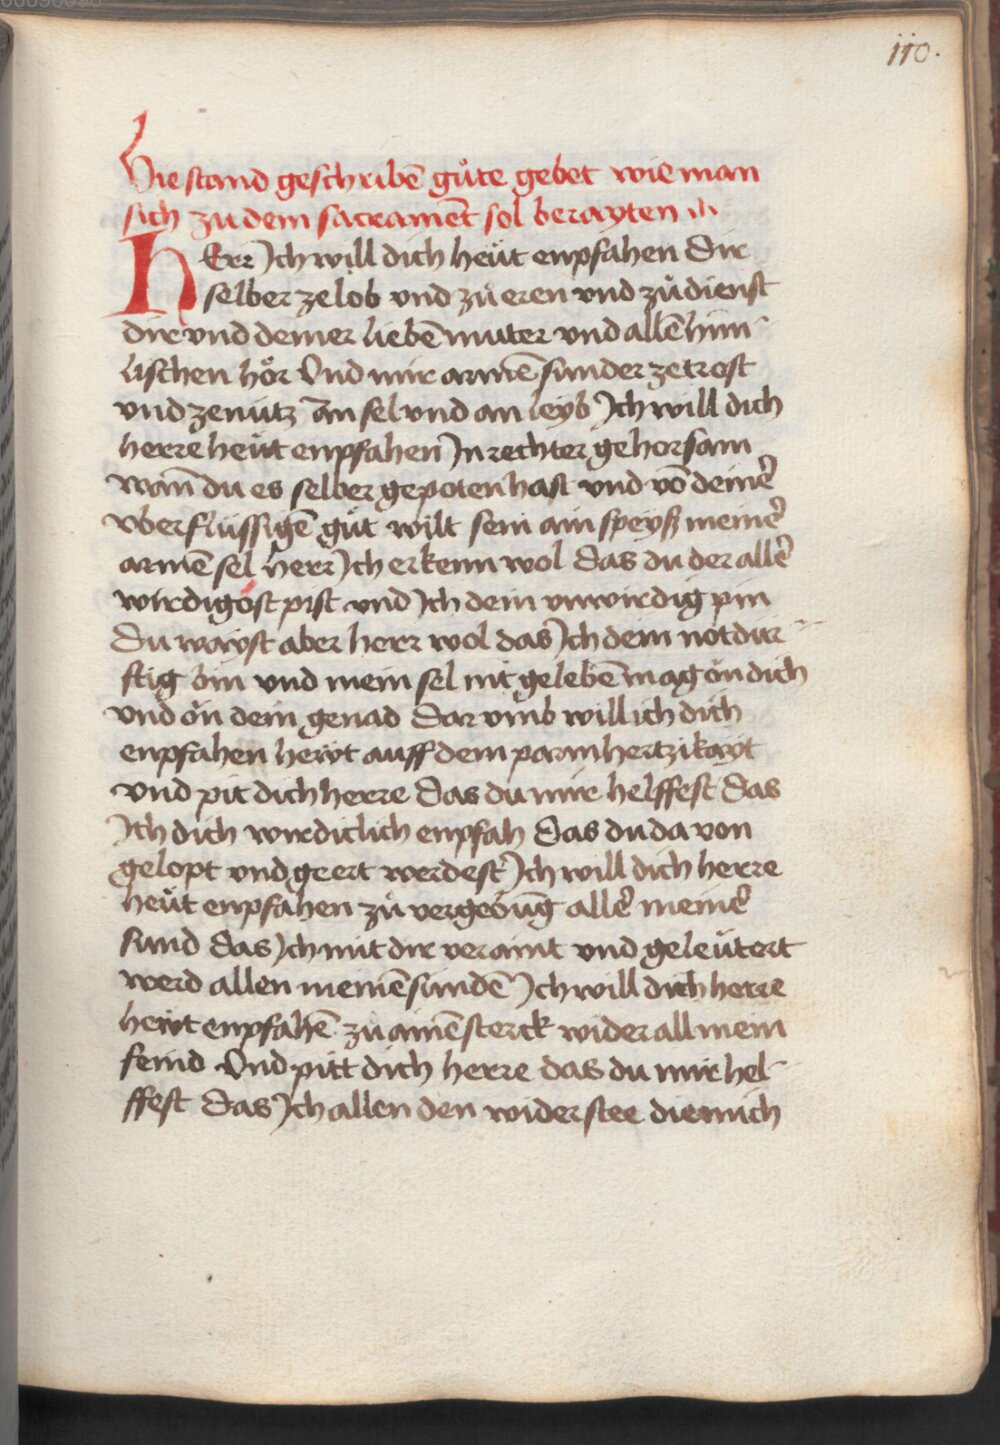 110.
Hie stand geschribē gůte gebet wie man
sich zu dem sacramēt sol berayten
HErr Ich will dich heüt enpfahen Dir
selber ze lob vnd zů eren vnd zů dienst
dir vnd deiner liebē muter vnd allē him-
lischen hör Vnd mir armē sunder ze trost
vnd ze nutz an sel vnd an leyb Ich will dich
herre heüt enpfahen In rechter gehorsam
wañ du es selber gepoten hast vnd vō deiner
vberflüssigē güt wilt sein ain speyß meiner
armē sel Herr Ich erkenn wol das du der aller
wirdigost pist vnd Ich dein vnwirdig pin
Du wayst aber herr wol das Ich dein notdur-
ftig bin vnd mein sel nit gelebē mag on dich
vnd on dein genad Dar vmb will ich dich
enpfahen hewt auff dein parmhertzikayt
vnd pit dich herre das du mir helffest das
Ich dich wirdiclich enpfah Das du da von
gelopt vnd geert werdest Ich will dich herre
heüt enpfahen zů vergebung aller meiner
sund das Ich mit dir veraint vnd geleütert
werd allen meinē sundē Ich will dich herre
hewt enpfahē zu ainē sterck wider all mein
feind Vnd pitt dich herre das du mir hel-
ffest das Ich allen den widerstee die mich